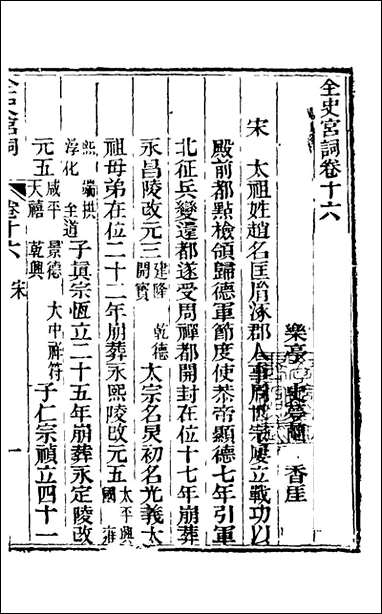 全史宮詞卷十六
樂亭 史夢蘭 香厓
宋 太祖姓趙名匡胤涿郡人事周世宗屢立戰功以
殿前都點檢領歸德軍節度使恭帝顯德七年引軍
北征兵變還都遂受周禪都開封在位十七年崩葬
永昌陵改元三 建隆 乾德 開寶 太宗名炅初名光義太
祖母弟在位二十二年崩葬永熙陵改元五 太平興國 雍
熙 端拱 淳化 至道 子眞宗恆立二十五年崩葬永定陵改
元五 咸平 景德 大中祥符 天禧 乾興 子仁宗禎立四十一
全史宮詞 卷十六 宋 一